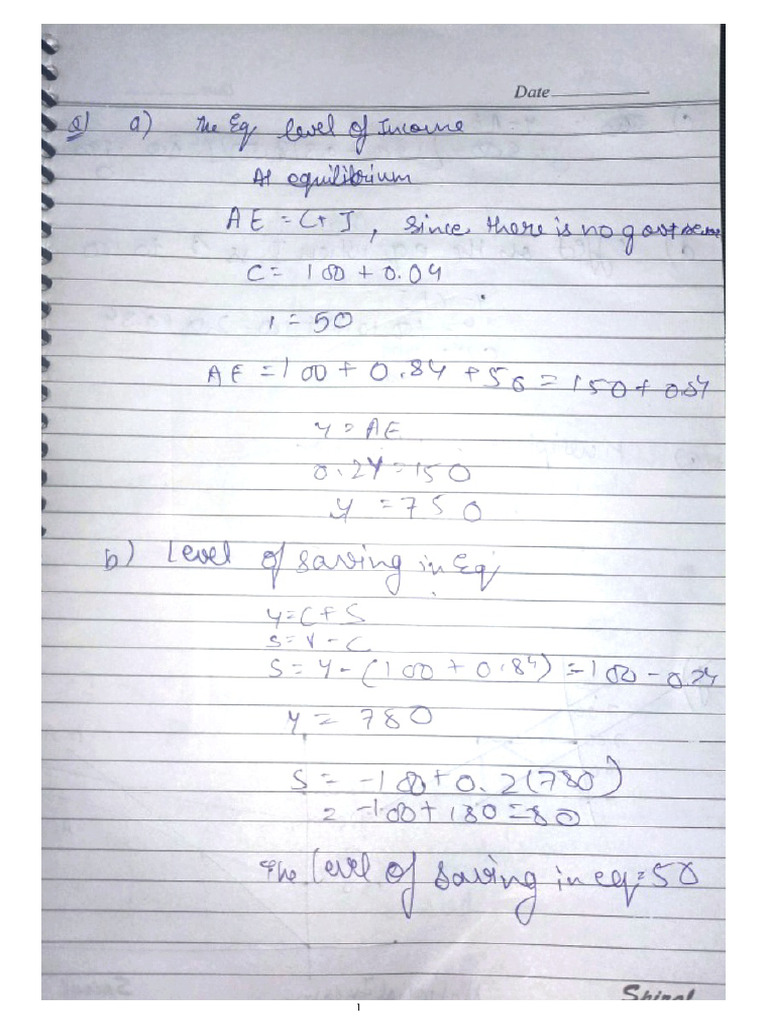 Date
Q) a) The Eq level of Income
At equilibrium
AE = C + I, Since there is no govt
C = 100 + 0.04
1 = 50
AE = 100 + 0.84 + 50 = 150 + 0.84
Y = AE
0.2Y = 150
Y = 750
b) Level of saving in Eq
Y = C + S
S = Y - C
S = Y - (100 + 0.84) = 100 - 0.24
Y = 780
S = -100 + 0.2(780)
= -100 + 180 = 80
The level of saving in eq = 50
Spiral
1